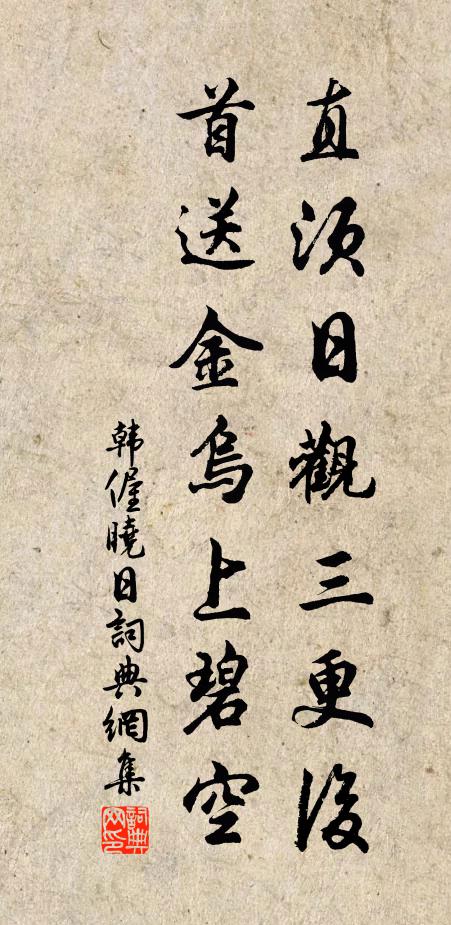 直須日觀三更後
首送金烏上碧空
韓偓曉日詞典網集
詞典網印